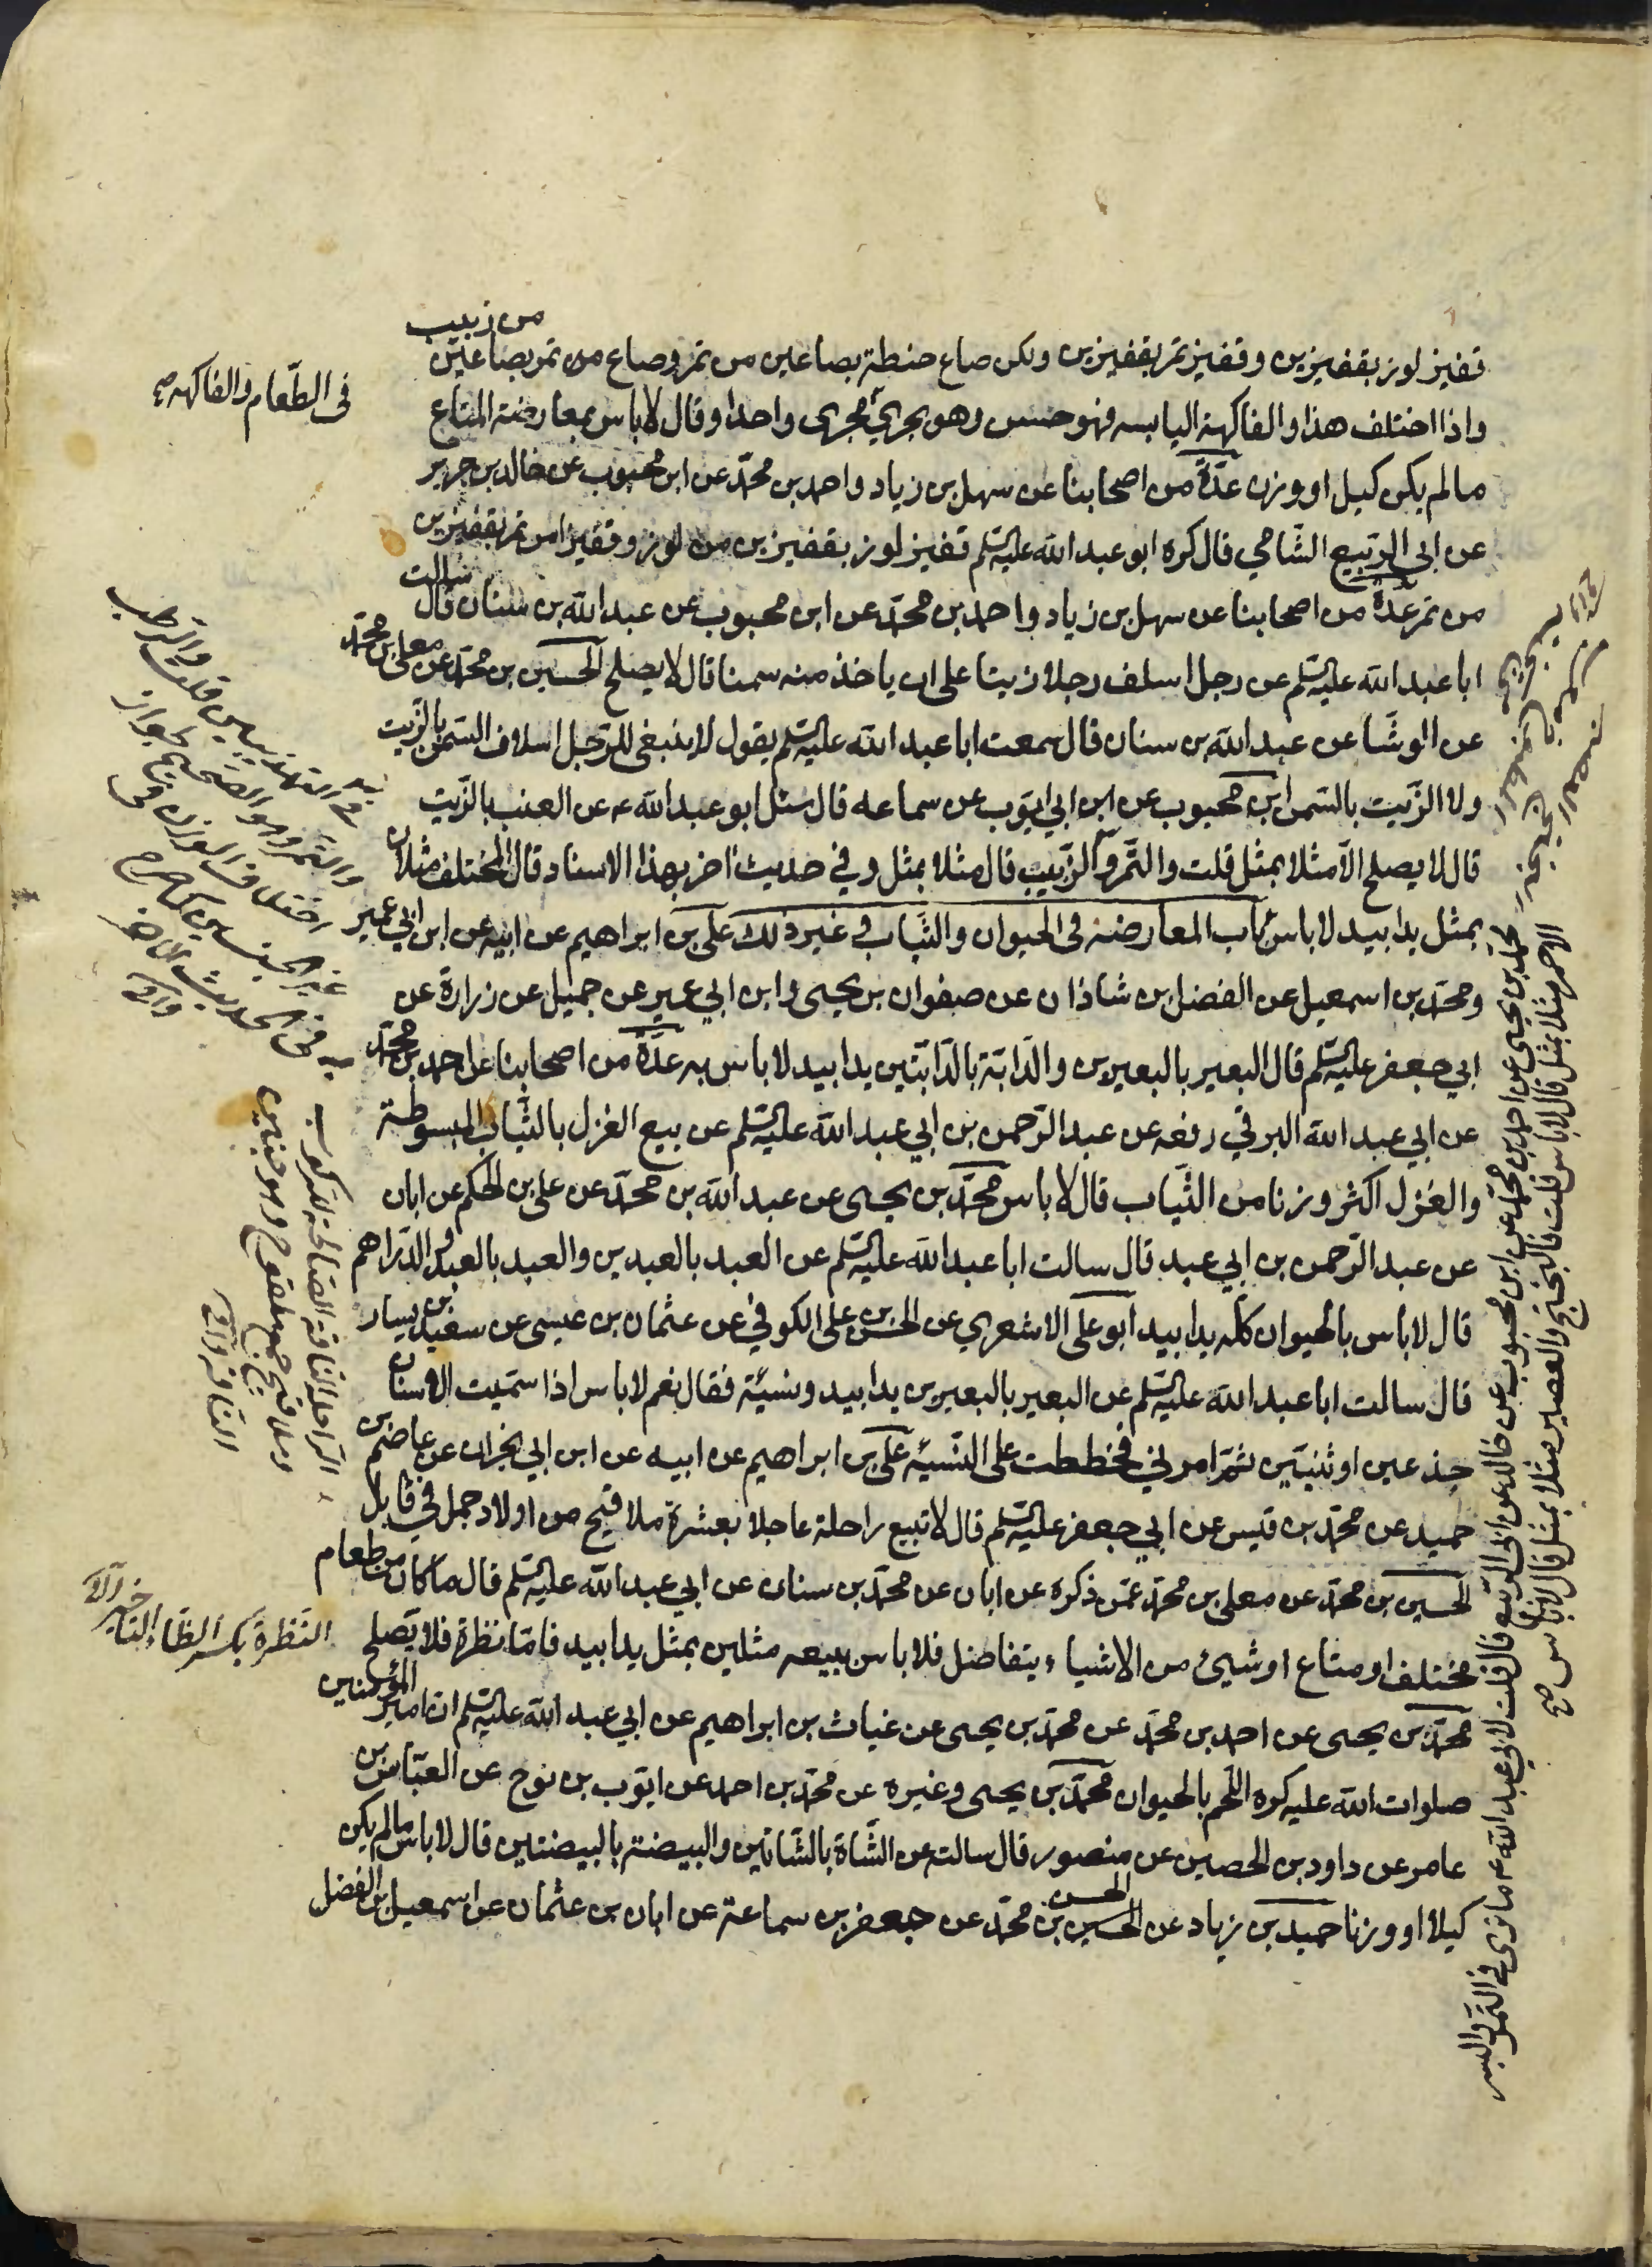 قفيز لوز بقفيزين وقفيز تمر بقفيزين ولكن صاع حنطة بصاعين من تمر وصاع من تمر بصاعين
من زبيب
واذا اختلف هذا والفاكهة اليابسه فهو حسن وهو يجري مجرى واحدا وقال لا باس بمعارضة المتاع
ما لم يكن كيل او وزن عدّة من اصحابنا عن سهل بن زياد واحمد بن محمّد عن ابن محبوب عن خالد بن جرير
عن ابي الربيع الشّامي قال كره ابو عبد الله عليه السلم قفيز لوز بقفيزين من لوز وقفيزا من تمر بقفيزين
من تمر عدّة من اصحابنا عن سهل بن زياد واحمد بن محمّد عن ابن محبوب عن عبد الله بن سنان قال سالت
ابا عبد الله عليه السلم عن رجل اسلف رجلا زيتا على ان ياخذ منه سمنا قال لا يصلح الحسين بن محمّد عن معلى بن محمّد
عن الوشّا عن عبد الله بن سنان قال سمعت ابا عبد الله عليه السلم يقول لا ينبغي للرّجل اسلاف السّمن بالزّيت
ولا الزّيت بالسّمن ابن محبوب عن ابن ابي ايّوب عن سماعه قال سئل ابو عبد الله ع عن العنب بالزّبيب
قال لا يصلح الّا مثلا بمثل قلت والتّمر والزّبيب قال مثلا بمثل وفي حديث اخر بهذا الاسناد قال المختلف مثلان
بمثل يدا بيد لا باس باب المعارضة فى الحيوان والثّياب وغير ذلك علي بن ابراهيم عن ابيه عن ابن ابي عمير
ومحمّد بن اسمعيل عن الفضل بن شاذان عن صفوان بن يحيى وابن ابي عمير عن جميل عن زرارة عن
ابي جعفر عليه السلم قال البعير بالبعيرين والدّابّة بالدّابّتين يدا بيد لا باس به عدّة من اصحابنا عن احمد بن محمّد
عن ابي عبد الله البرقي رفعه عن عبد الرّحمن بن ابي عبد الله عليه السلم عن بيع الغزل بالثّياب المبسوطة
والغزل اكثر وزنا من الثّياب قال لا باس محمّد بن يحيى عن عبد الله بن محمّد عن على بن الحكم عن ابان
عن عبد الرّحمن بن ابي عبد قال سالت ابا عبد الله عليه السلم عن العبد بالعبدين والعبد بالعبد والدّراهم
قال لا باس بالحيوان كلّه يدا بيد ابو على الاشعري عن الحسن بن على الكوفي عن عثمان بن عيسى عن سعيد بن يسار
قال سالت ابا عبد الله عليه السلم عن البعير بالبعيرين يدا بيد ونسيئة فقال نعم لا باس اذا سمّيت الاسنان
جذعين او ثنيّين ثمّ امرني فخططت على النّسيئه على بن ابراهيم عن ابيه عن ابن ابي نجران عن عاصم بن
حميد عن محمّد بن قيس عن ابي جعفر عليه السلم قال لا تبيع راحلة عاجلا بعشرة ملاقيح من اولاد جمل في قابل
الحسين بن محمّد عن معلى بن محمّد عمّن ذكره عن ابان عن محمّد بن سنان عن ابي عبد الله عليه السلم قال ما كان من طعام
مختلف او متاع او شيئ من الاشياء يتفاضل فلا باس ببيعه مثلين بمثل يدا بيد فامّا نظرة فلا يصلح
محمّد بن يحيى عن احمد بن محمّد عن محمّد بن يحيى عن غياث بن ابراهيم عن ابي عبد الله عليه السلم ان امير المؤمنين
صلوات الله عليه كره اللّحم بالحيوان محمّد بن يحيى وغيره عن محمّد بن احمد عن ايّوب بن نوح عن العبّاس بن
عامر عن داود بن الحصين عن منصور قال سالته عن الشّاة بالشّاتين والبيضة بالبيضتين قال لا باس ما لم يكن
كيلا او وزنا حميد بن زياد عن الحسين بن محمّد عن جعفر بن سماعة عن ابان بن عثمان عن اسمعيل بن الفضل
الحسن
فى الطّعام والفاكهه
النّظرة بكسر الظّاء التاخير
محمّد بن يحيى عن احمد بن محمّد عن ابن محبوب عن خالد عن ابى الربيع قال قلت لابي عبد الله ع ما ترى في التمر والبسر
الاحمر مثلا بمثل قال لا باس قلت فالبختج والعصير مثلا بمثل قال لا باس صح